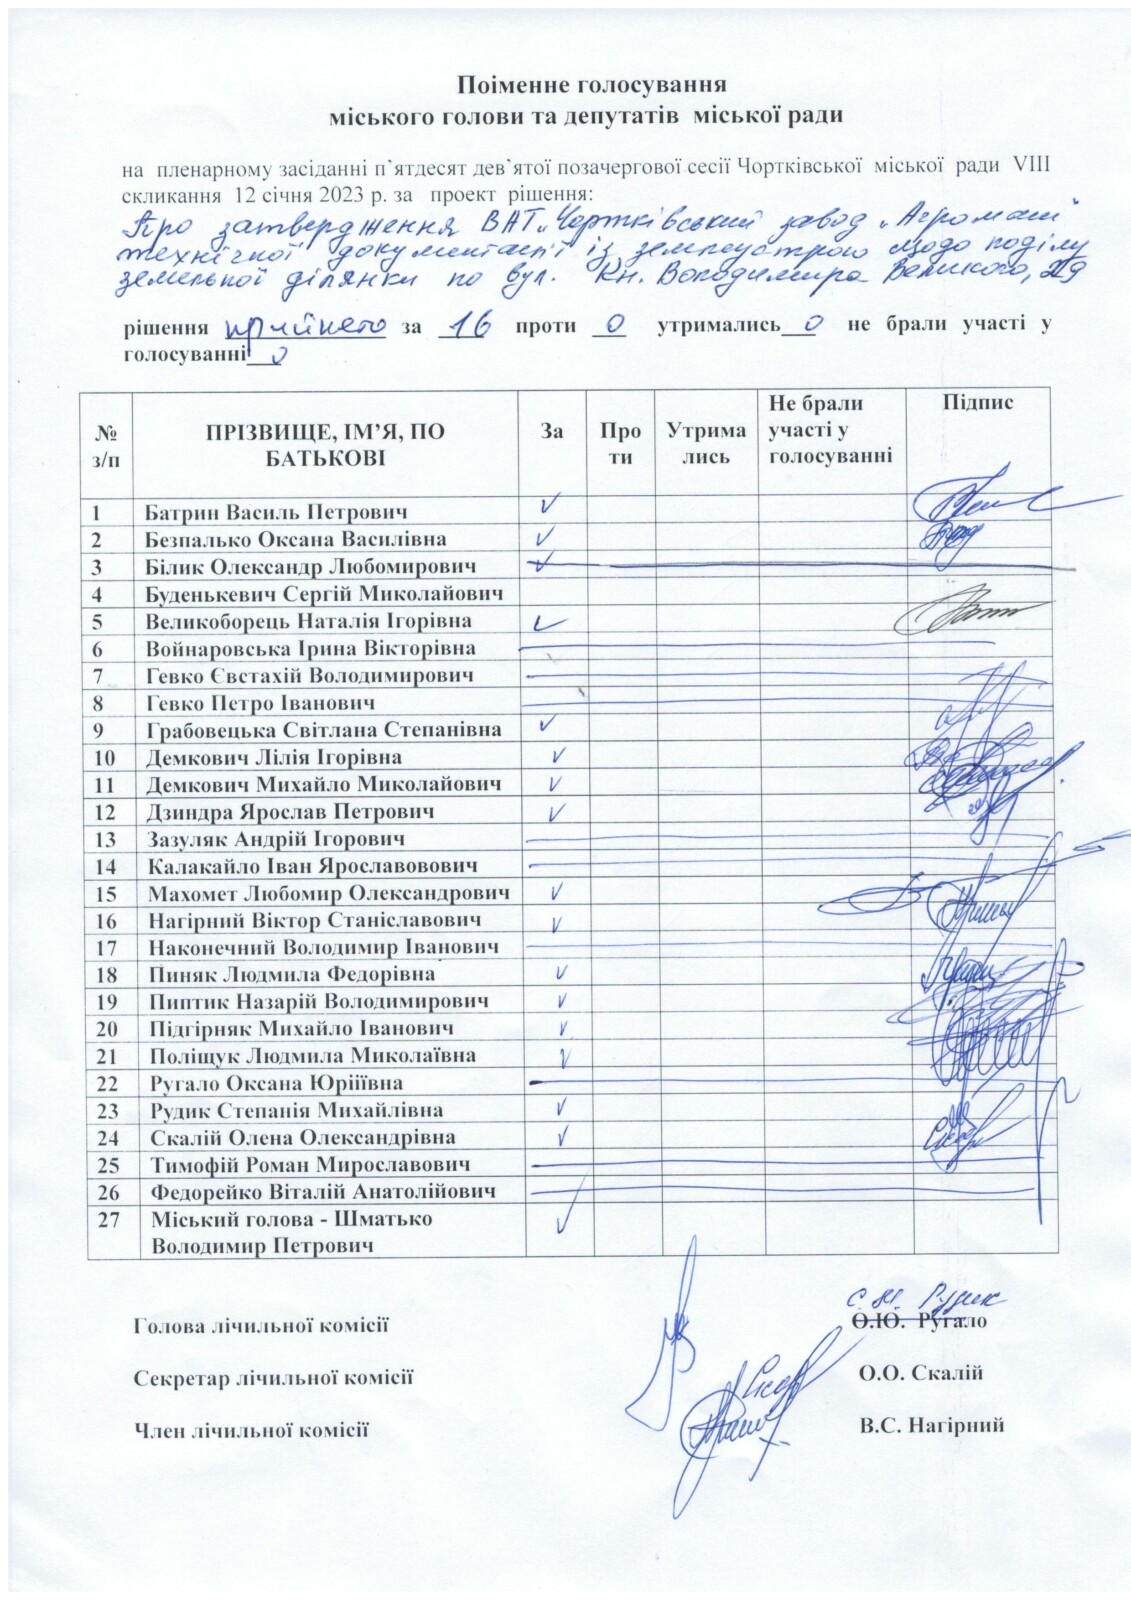 Поіменне голосування
міського голови та депутатів міської ради
на пленарному засіданні п`ятдесят дев`ятої позачергової сесії Чортківської міської ради VIII
скликання 12 січня 2023 р. за проект рішення:
Про затвердження ВАТ „Чортківський завод „Агромаш"
технічної документації із землеустрою щодо поділу
земельної ділянки по вул. Кн. Володимира Великого,
рішення прийнято за 16 проти 0 утримались 0 не брали участі у
голосуванні 0
№ з/п ПРІЗВИЩЕ, ІМ’Я, ПО БАТЬКОВІ За Про ти Утрима лись Не брали участі у голосуванні Підпис
1 Батрин Василь Петрович ✓
2 Безпалько Оксана Василівна ✓
3 Білик Олександр Любомирович ✓
4 Буденькевич Сергій Миколайович
5 Великоборець Наталія Ігорівна ✓
6 Войнаровська Ірина Вікторівна
7 Гевко Євстахій Володимирович
8 Гевко Петро Іванович
9 Грабовецька Світлана Степанівна ✓
10 Демкович Лілія Ігорівна ✓
11 Демкович Михайло Миколайович ✓
12 Дзиндра Ярослав Петрович ✓
13 Зазуляк Андрій Ігорович
14 Калакайло Іван Ярославовович
15 Махомет Любомир Олександрович ✓
16 Нагірний Віктор Станіславович ✓
17 Наконечний Володимир Іванович
18 Пиняк Людмила Федорівна ✓
19 Пиптик Назарій Володимирович ✓
20 Підгірняк Михайло Іванович ✓
21 Поліщук Людмила Миколаївна ✓
22 Ругало Оксана Юріїівна
23 Рудик Степанія Михайлівна ✓
24 Скалій Олена Олександрівна ✓
25 Тимофій Роман Мирославович
26 Федорейко Віталій Анатолійович
27 Міський голова - Шматько Володимир Петрович ✓
С. М. Рудик
Голова лічильної комісії О.Ю. Ругало
Секретар лічильної комісії О.О. Скалій
Член лічильної комісії В.С. Нагірний